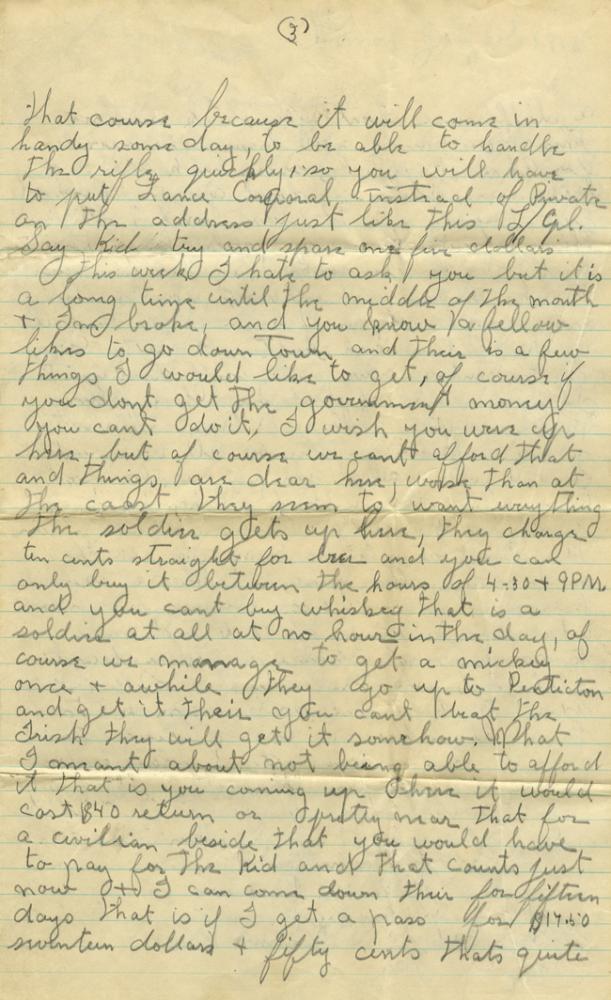 (3)
that course because it will come in
handy some day, to be able to handle
the rifle quickly, so you will have
to put Lance Corporal instead of Private
on the address just like this L/Cpl.
Say Kid try and spare me five dollars
this week I hate to ask you but it is
a long time until the middle of the month
+ I'm broke, and you know a fellow
likes to go down Town and their is a few
things I would like to get, of course if
you dont get the government money
you cant do it, I wish you were up
here, but of course we cant afford that
and things are dear here, worse than at
the coast they seem to want everything
the soldier gets up here, they charge
ten cents straight for beer and you can
only buy it between the hours of 4-30 + 9PM
and you cant buy whiskey that is a
soldier at all at no hour in the day, of
course we manage to get a mickey
once + awhile they go up to Penticton
and get it their you cant beat the
Irish they will get it somehow. What
I meant about not being able to afford
it that is you coming up here it would
cost $40 return or pretty near that for
a civilian beside that you would have
to pay for the Kid and that counts just
now + I can come down their for fifteen
days that is if I get a pass for $17.50
seventeen dollars + fifty cents thats quite